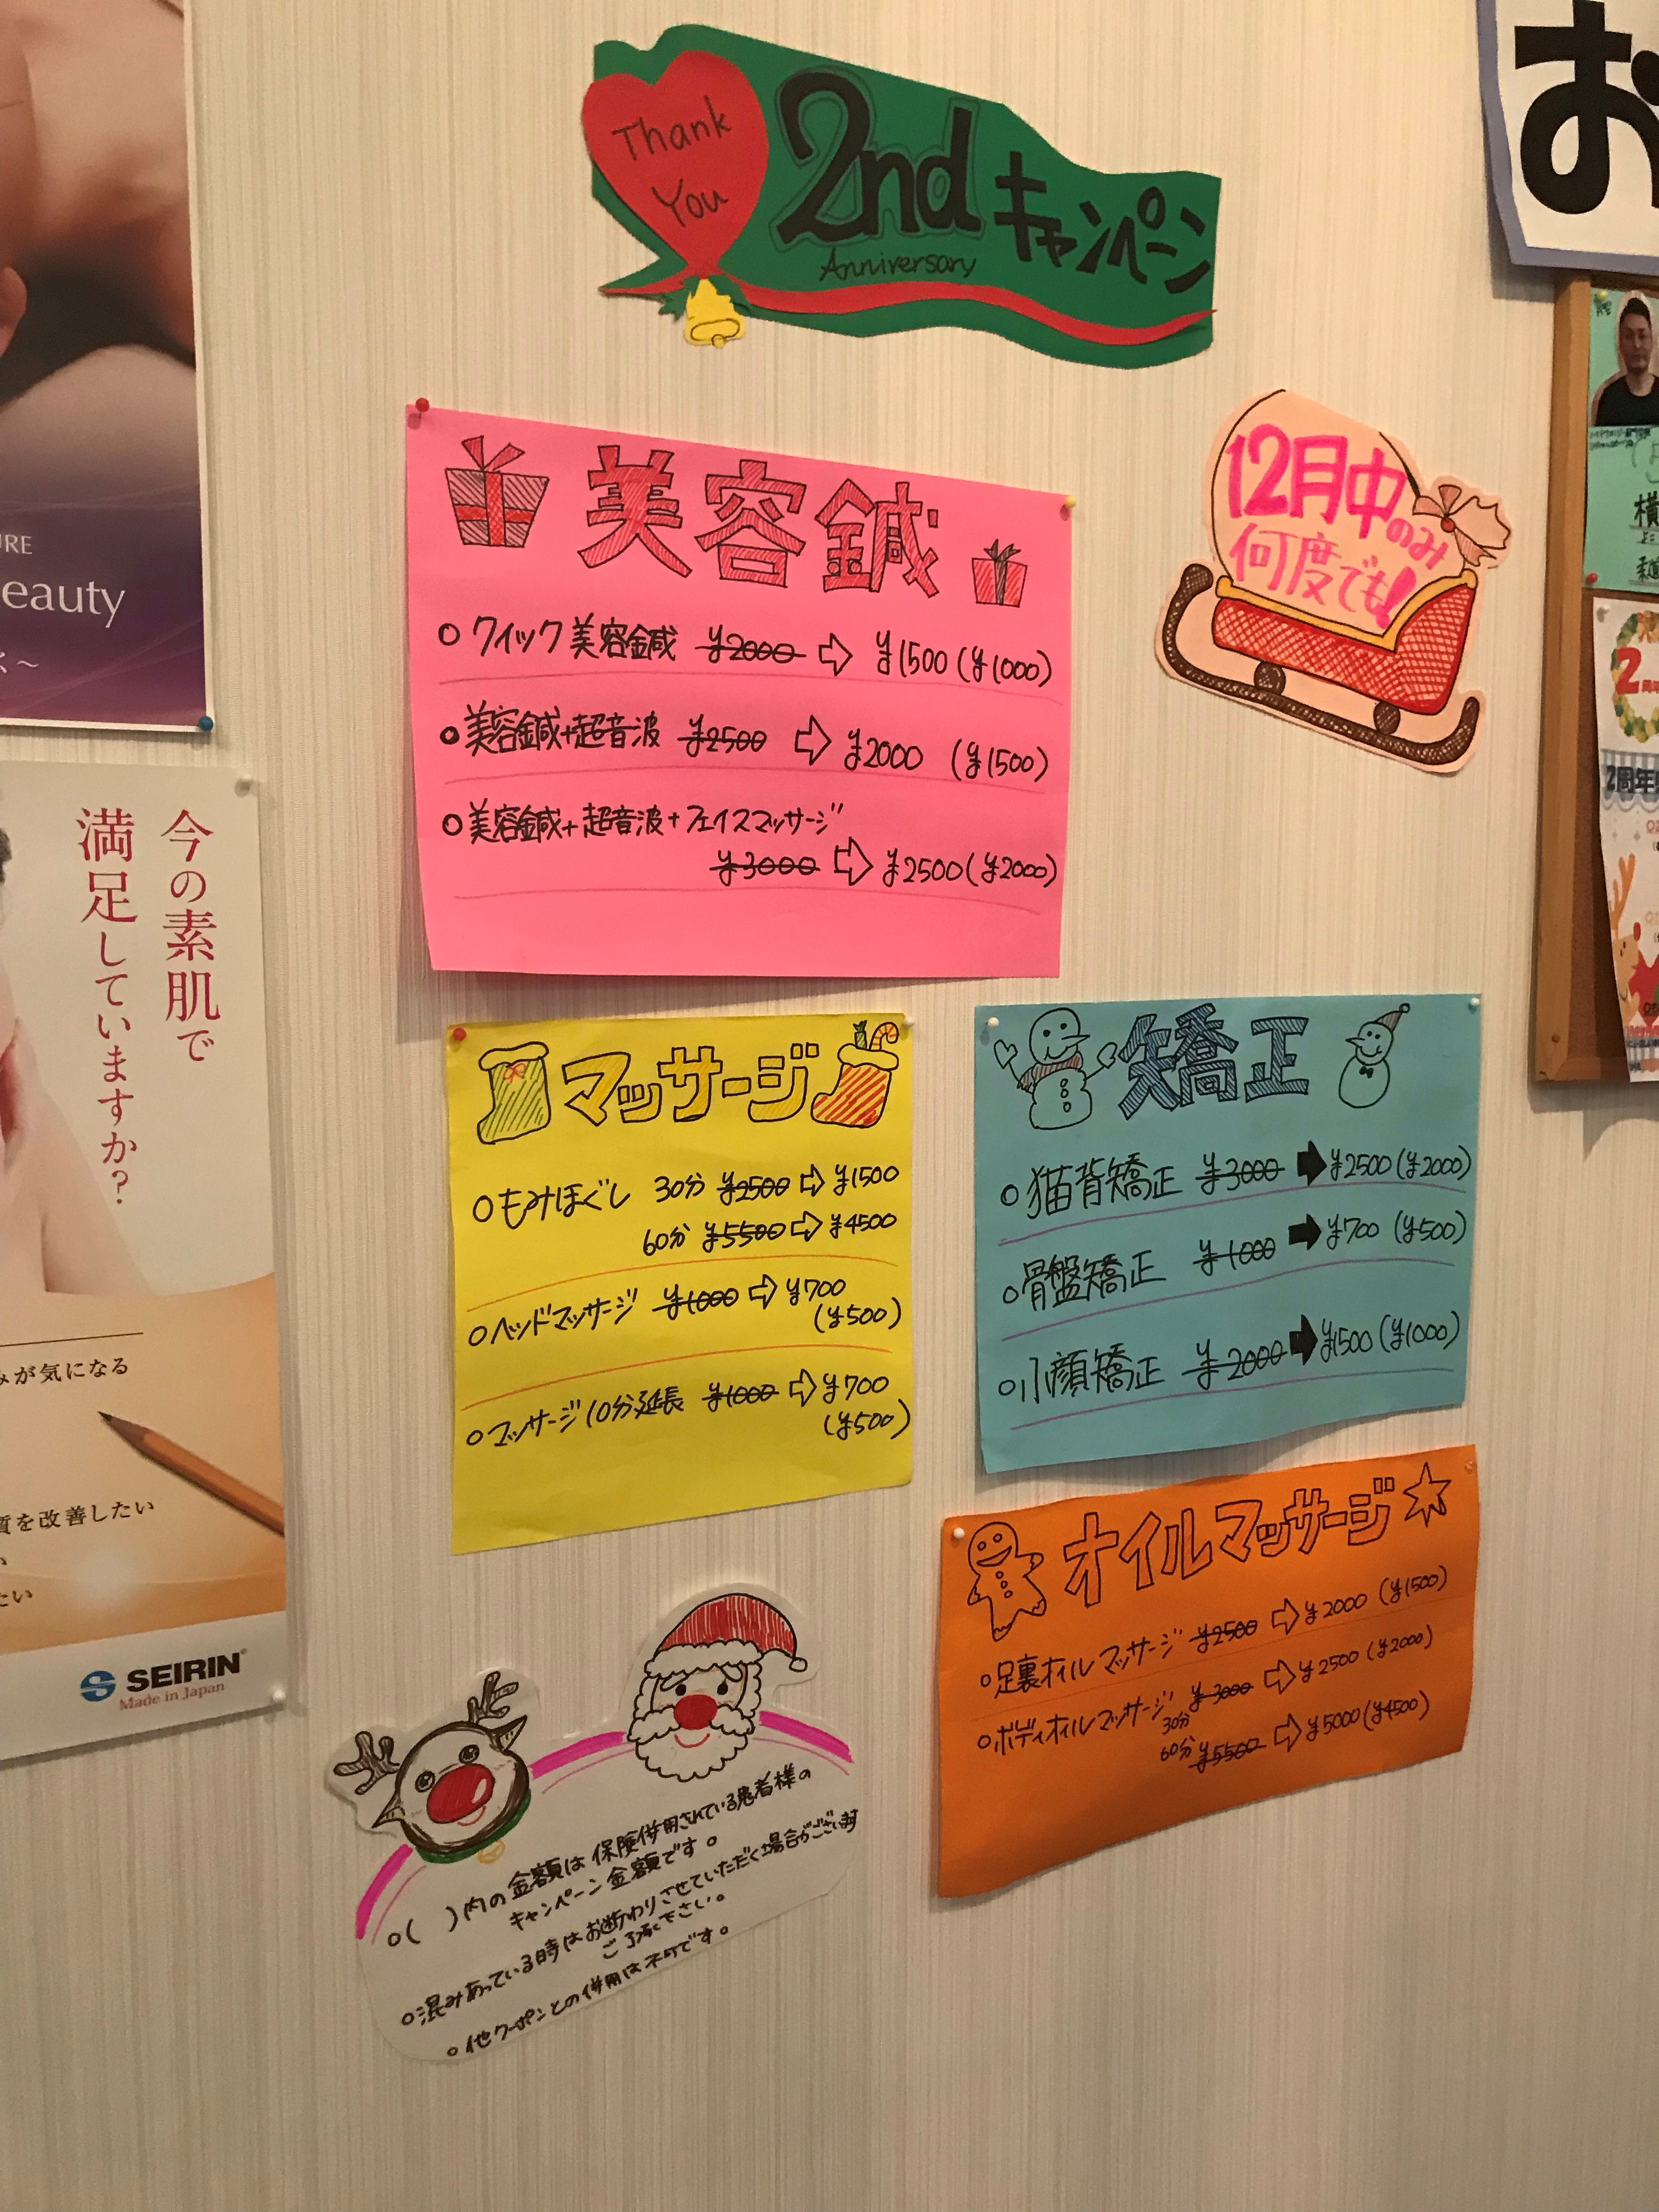 Thank
You
2nd キャンペーン
Anniversary
お
12月中のみ
何度でも!
美容鍼
○クイック美容鍼 ¥2000 ⇨ ¥1500 (¥1000)
○美容鍼+超音波 ¥2500 ⇨ ¥2000 (¥1500)
○美容鍼+超音波+フェイスマッサージ
¥3000 ⇨ ¥2500 (¥2000)
マッサージ
○もみほぐし 30分 ¥2500 ⇨ ¥1500
60分 ¥5500 ⇨ ¥4500
○ヘッドマッサージ ¥1000 ⇨ ¥700
(¥500)
○マッサージ10分延長 ¥1000 ⇨ ¥700
(¥500)
矯正
○猫背矯正 ¥3000 ➡ ¥2500 (¥2000)
○骨盤矯正 ¥1000 ➡ ¥700 (¥500)
○小顔矯正 ¥2000 ➡ ¥1500 (¥1000)
オイルマッサージ☆
○足裏オイルマッサージ ¥2500 ⇨ ¥2000 (¥1500)
○ボディオイルマッサージ 30分 ¥3000 ⇨ ¥2500 (¥2000)
60分 ¥5500 ⇨ ¥5000 (¥4500)
○( )内の金額は保険併用されている患者様の
キャンペーン金額です。
○混みあっている時はお断わりさせていただく場合がございます
ご了承下さい。
○他クーポンとの併用は不可です。
URE
eauty
く～
今の素肌で
満足していますか?
みが気になる
質を改善したい
い
たい
SEIRIN
Made in Japan
横
2周年